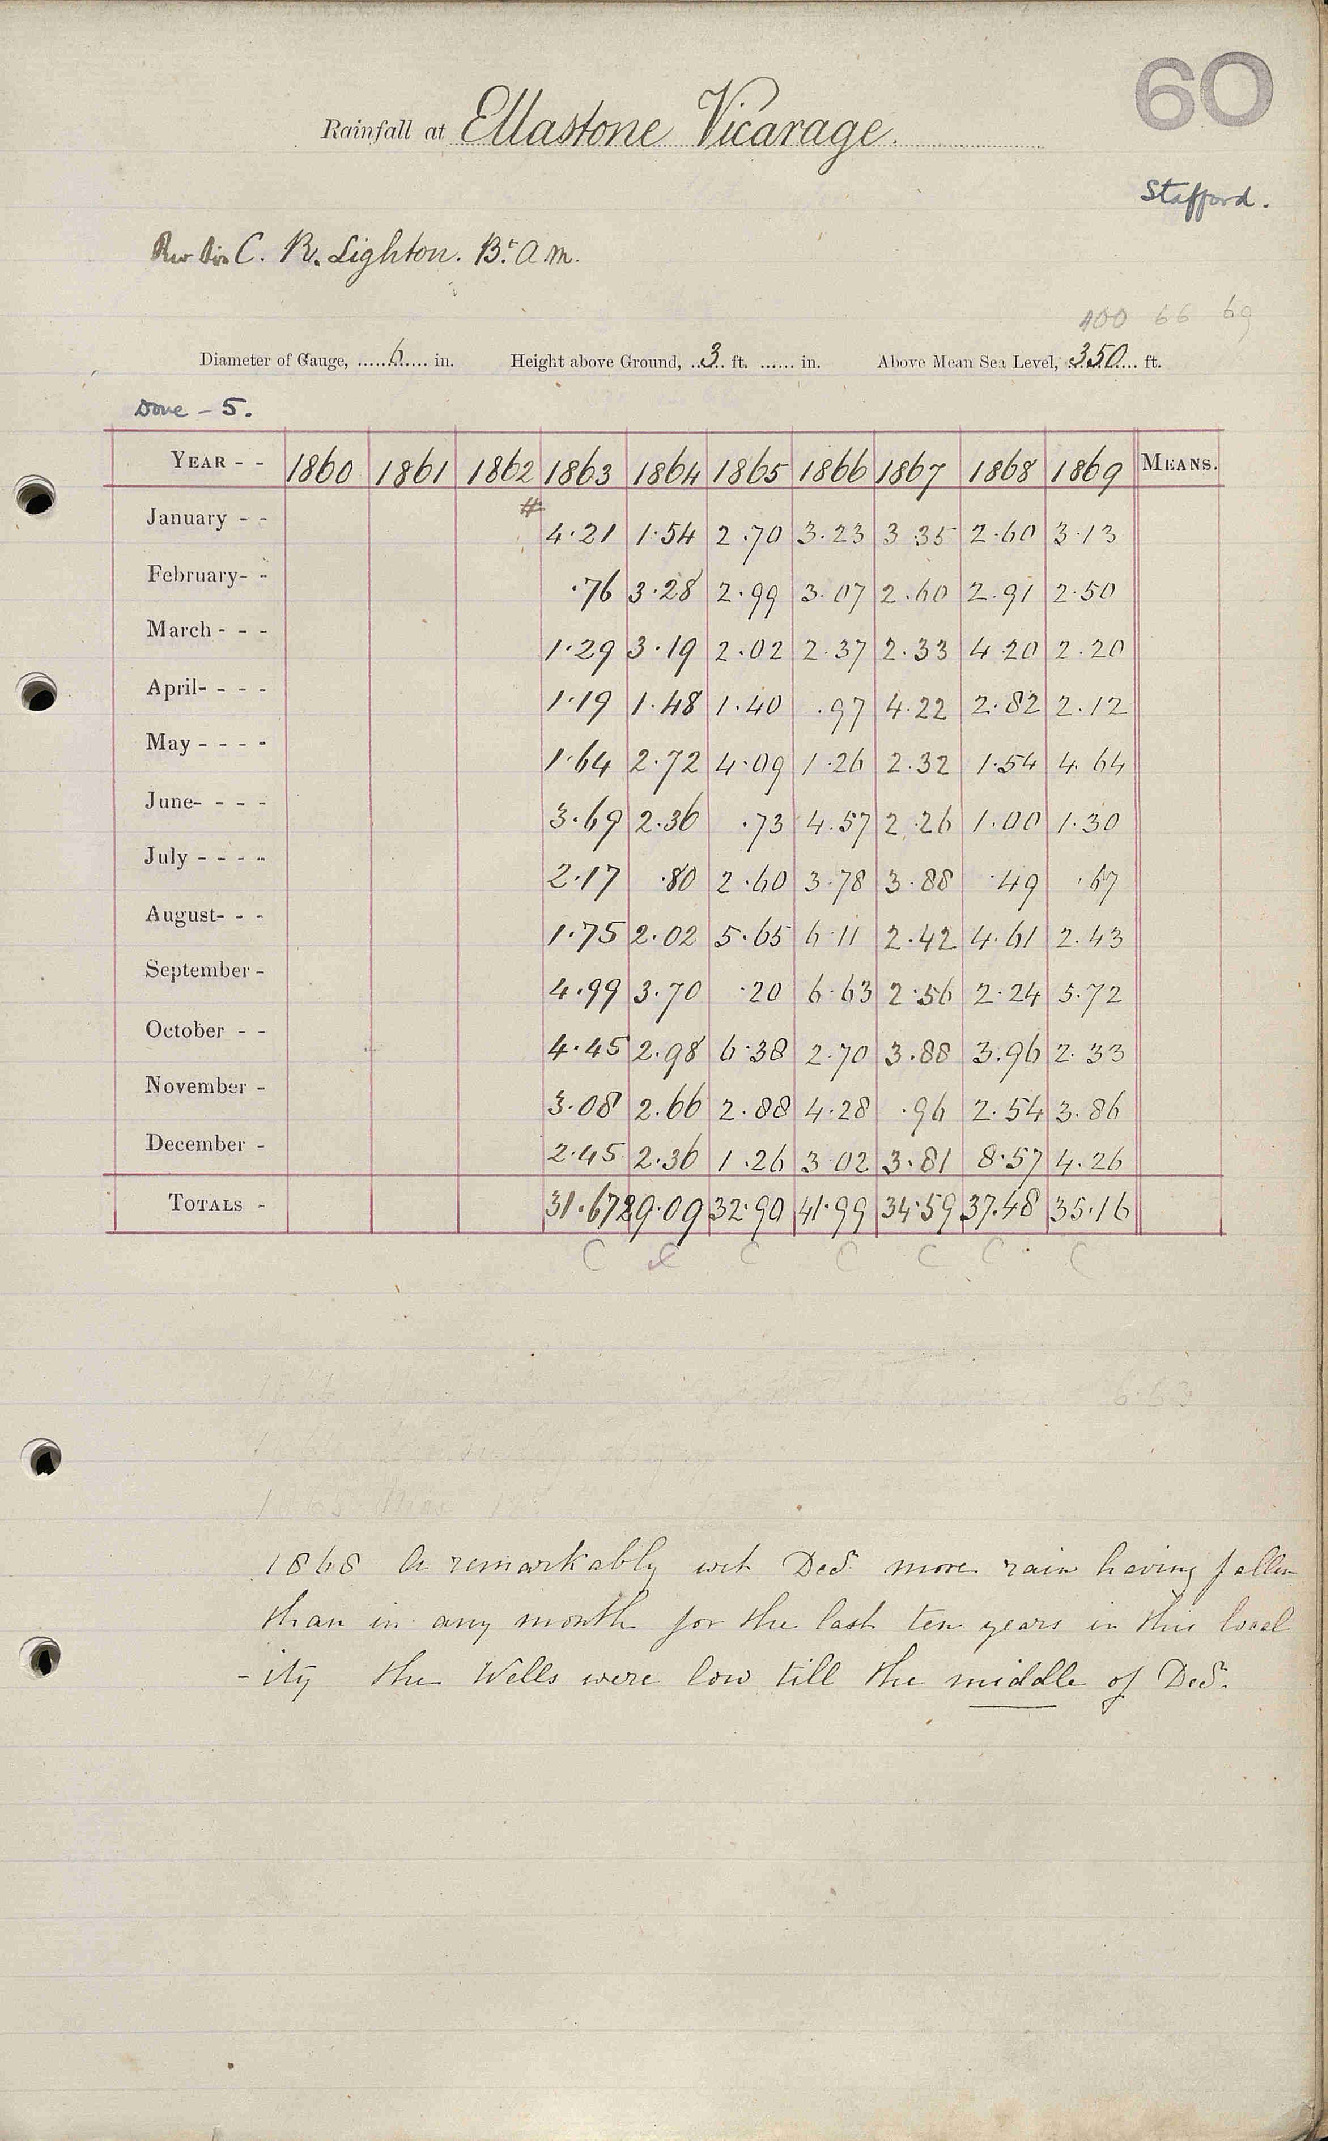 60
Rainfall at Ellastone Vicarage.
Stafford.
Rev Sir C. R. Lighton. Bt. A M.
400 66 69
Diameter of Gauge, ......6...... in. Height above Ground, ..3.. ft. ...... in. Above Mean Sea Level, ..350.... ft.
Dove - 5.
YEAR - - 1860 1861 1862 1863 1864 1865 1866 1867 1868 1869 MEANS.
#
January - - 4.21 1.54 2.70 3.23 3.35 2.60 3.13
February- - .76 3.28 2.99 3.07 2.60 2.91 2.50
March - - - 1.29 3.19 2.02 2.37 2.33 4.20 2.20
April- - - - 1.19 1.48 1.40 .97 4.22 2.82 2.12
May - - - - 1.64 2.72 4.09 1.26 2.32 1.54 4.64
June- - - - 3.69 2.36 .73 4.57 2.26 1.00 1.30
July - - - - 2.17 .80 2.60 3.78 3.88 .49 .67
August- - - 1.75 2.02 5.65 6.11 2.42 4.61 2.43
September - 4.99 3.70 .20 6.63 2.56 2.24 5.72
October - - 4.45 2.98 6.38 2.70 3.88 3.96 2.33
November - 3.08 2.66 2.88 4.28 .96 2.54 3.86
December - 2.45 2.36 1.26 3.02 3.81 8.57 4.26
TOTALS - 31.67 29.09 32.90 41.99 34.59 37.48 35.16
C C C C C C C
1868 A remarkably wet Decr. more rain having fallen
than in any month for the last ten years in this local
-ity the Wells were low till the middle of Decr.